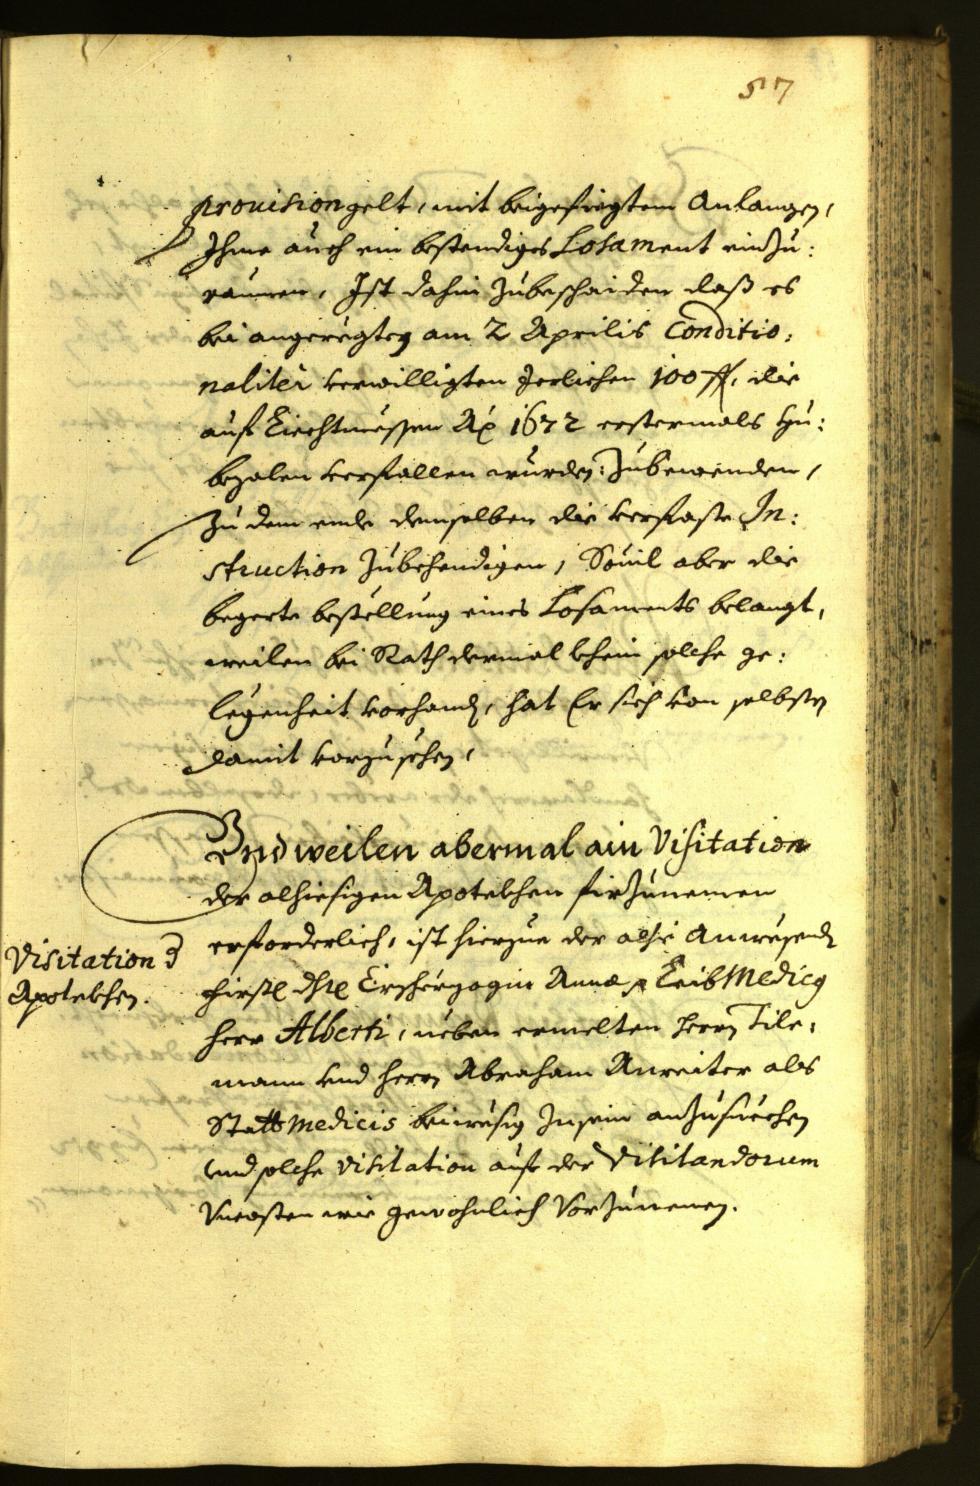 57
provisiongelt, mit beigefiegtem Anlangen,
Ihme auch ein bestendiges Losament einzu:
raumen, Ist dahin zubeschaiden daß es
bei angeregten am 2 Aprilis Conditio:
naliter verwilligten Jerlichen 100 ff, die
auf Liechtmessen Aõ 1672 erstermals zu:
bezalen verfallen wurden: zubewenden,
zu dem ende demselben die verfaste In:
struction zubehendigen, Souil aber die
begerte bestellung eines Losaments belangt,
weilen bei Rath dermal khein solche ge:
legenheit vorhanden, hat Er sich von selbsten
damit vorzusehen,
Vnd weilen abermal ain Visitation
der alhiesigen Apotekhen firzunemen
erforderlich, ist hierzue der alhie Anwesende
Visitation d
Apotekhen.
firstl dhl Erzherzogin Annæ Leib Medicus
herr Alberti, neben ermelten herrn Tile:
mann vnd herrn Abraham Anreiter als
Statt Medicis beiwesig zusein anzusuechen
vnd solche visitation auf der Visitandorum
Vncosten wie gewohnlich Vorzunemen.